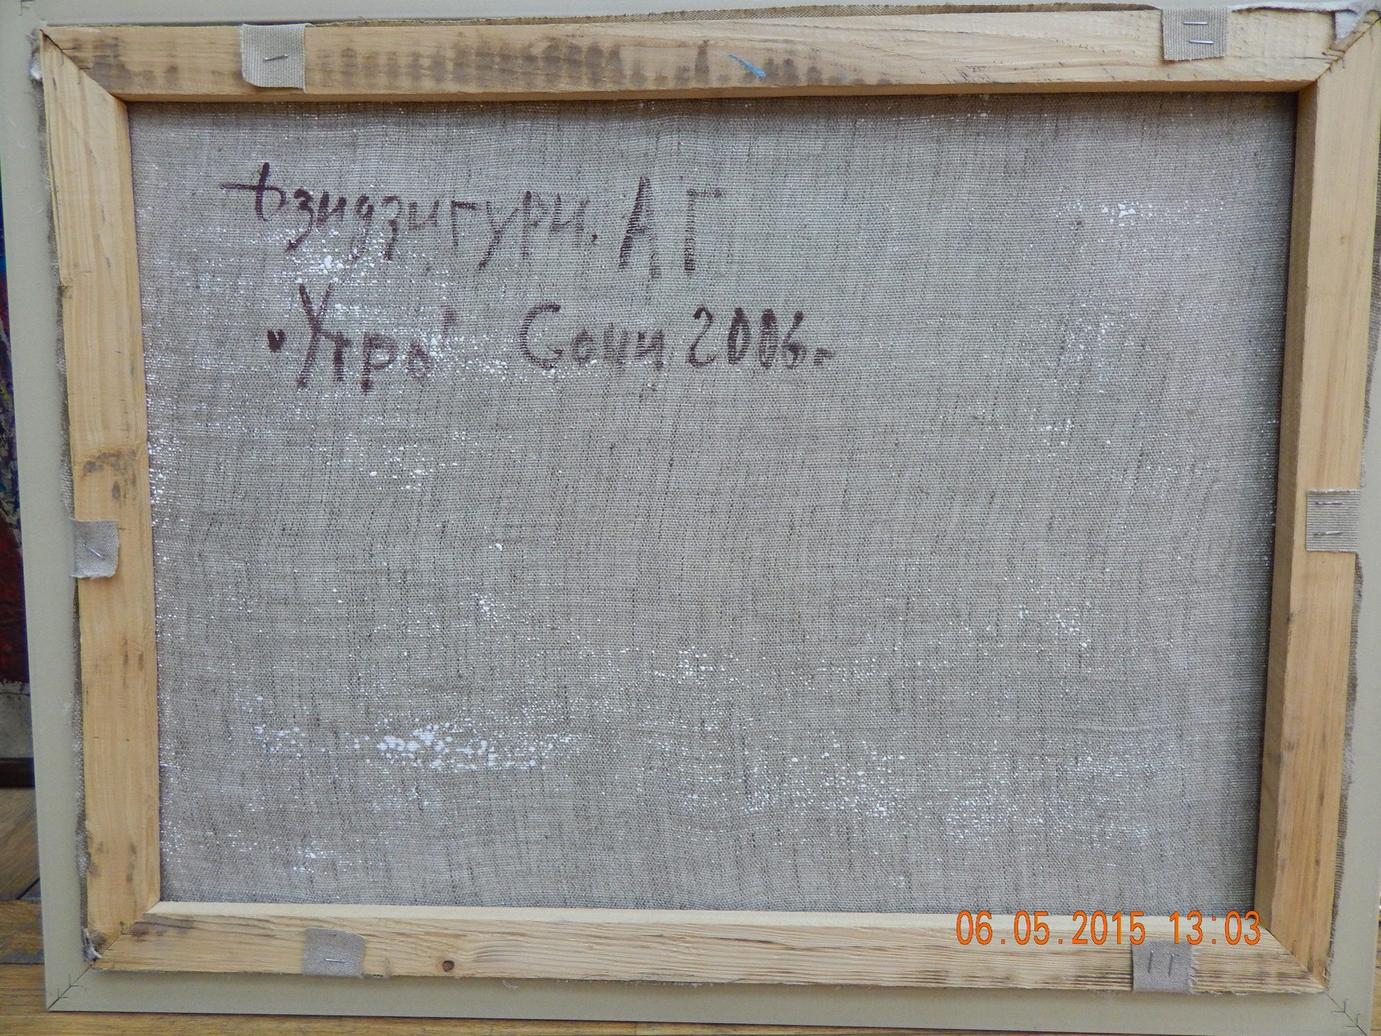 Дзидзигури. А Г
"Утро" Сочи 2006.
06.05.2015 13:03